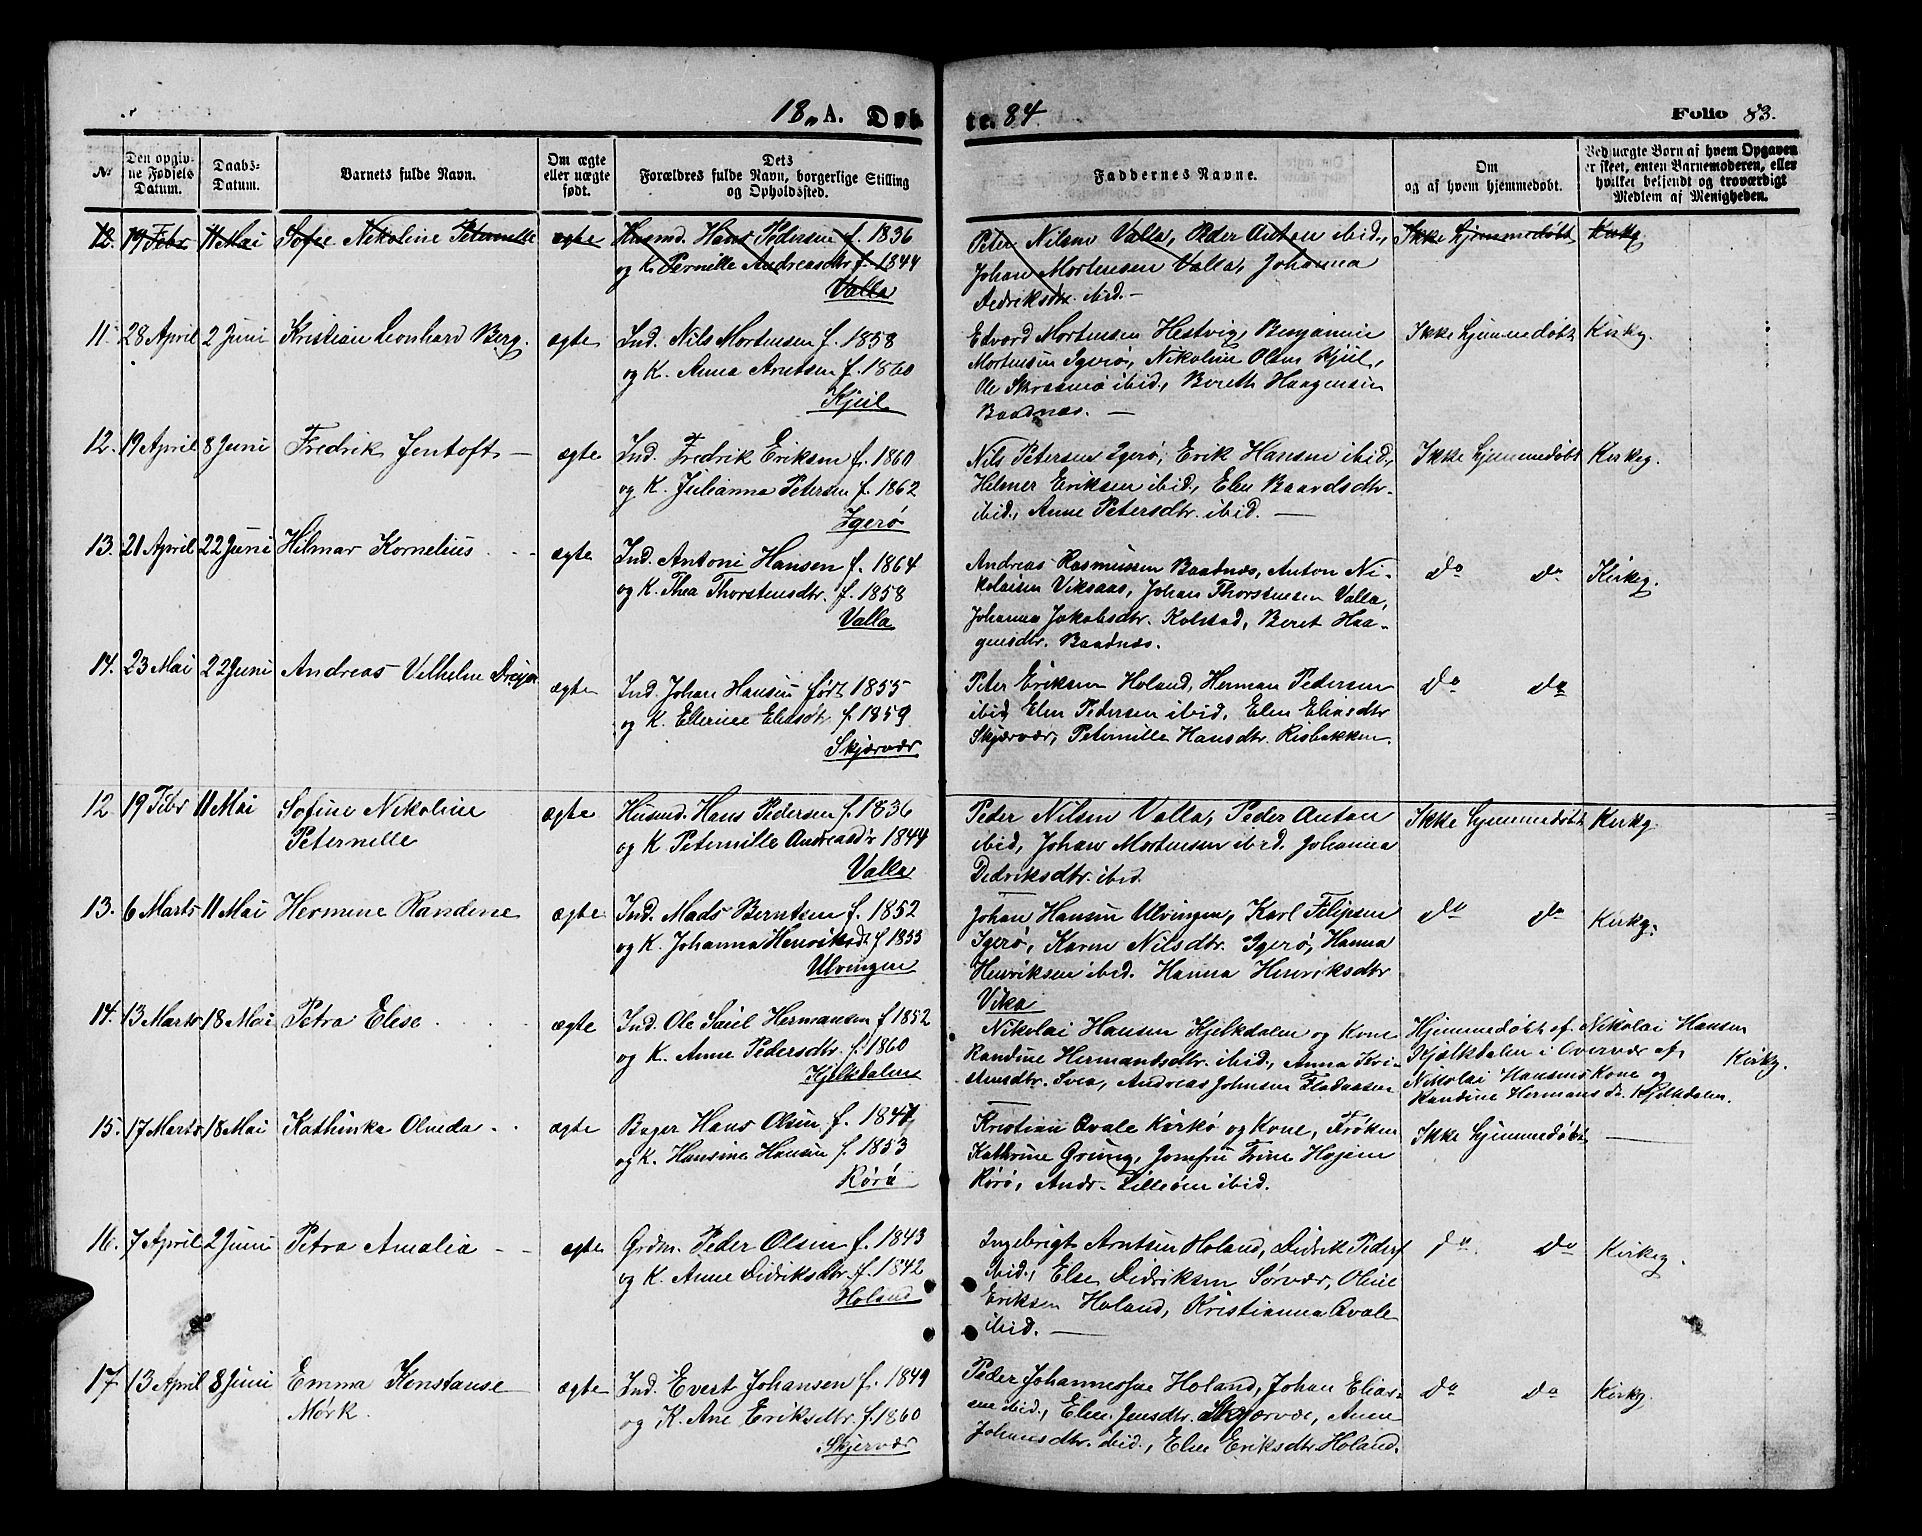 18 A. Døbte. 84 Folio 83.
No Den opgivne Fødsels Datum. Daabs-Datum. Barnets fulde Navn. Om ægte eller uægte født. Dets Forældres fulde Navn, borgerlige Stilling og Opholdssted. Faddernes Navne. Om og af hvem hjemmedøbt. Ved uægte Børn af hvem Opgaven er skeet, enten Barnemoderen, eller hvilket betjendt og troværdigt Medlem af Menigheden.
12. 19 Febr 11 Mai Sofie Nikoline Peternille ægte Husmd. Hans Pedersen f. 1836 Peter Nilsen Valla, Peder Anton ibid., Ikke hjemmedøbt Kirkg
og K. Pernille Andreasdtr f. 1844 Johan Mortensen Valla, Johanna
Valla Dedriksdtr. ibid. —
11. 28 April 2 Juni Kristian Leonhard Berg. ægte Ind. Nils Mortensen f. 1858 Edvard Mortensen Hestvig, Benjamin Ikke hjemmedøbt Kirkg.
og K. Anna Arntsen f. 1860 Mortensen Igerø, Nikoline Olsen Kjeil,
Kjeil Ole ibid., Bereth Haagensen
Baadnæs. —
12. 19 April 8 Juni Fredrik Jentoft — ægte Ind. Fredrik Eriksen f. 1860 Nils Petersen Igerø, Erik Hansen ibid., Ikke hjemmedøbt Kirkeg.
og K. Julianna Petersen f. 1862 Helmer Eriksen ibid., Elen Baardsdtr.
Igerø ibid., Anne Petersdtr. ibid. —
13. 21 April 22 Juni Hilmar Kornelius - - ægte Ind. Antoni Hansen f. 1864 Andreas Rasmussen Baadnæs, Anton Ni- do do Kirkg.
og K. Thea Thorstensdtr. f. 1858 kolaisen Viksaas, Johan Thorstensen Valla,
Valla Johanna Jakobsdtr. Kolstad, Beret Haa-
gensdtr. Baadnæs.
14. 23 Mai 22 Juni Andreas Vilhelm Dreyer ægte Ind. Johan Hansen født 1855 Peter Eriksen Holand, Herman Pedersen do do
og K. Ellerine Eliasdtr f. 1859 ibid, Elen Pedersen ibid, Elen Eliasdtr
Skjærvær Skjærvær, Peternille Hansdtr. Risbakken.
12 19 Febr 11 Mai Sofine Nikoline ægte Husmd. Hans Pedersen f. 1836 Peder Nilsen Valla, Peder Anton Ikke hjemmedøbt Kirkg.
Peternelle og K Peternille Andreasdtr 1844 ibid, Johan Mortensen ibid. Johanna
Valla Dedriksdtr. ibid
13. 6 Marts 11 Mai Hermine Randine ægte Ind. Mads Berntsen f. 1852 Johan Hansen Ulvingen, Karl Filipsen do do Kirkg.
og K. Johanna Henriksdt f 1855 Igerø, Karen Nilsdtr. Igerø, Hanna
Ulvingen Henriksen ibid. Hanna Henriksdtr
Vika
14. 13 Marts 18 Mai Petra Elise ægte Ind. Ole Saul Hermansen f 1852 Nikolai Hansen Kjelkdalen og Kone Hjemmedøbt af Nikolai Hansen
og K. Anne Pedersdtr. f. 1860 Randine Hermansdtr. ibid., Anna Kri- Kjelkdalen i Overvær af Kirkg.
Kjelkdalen stensdtr. Svea, Andreas Johnsen Nikolai Hansens Kone og
Randine Hermansdr. Kjelkdalen.
15. 17 Marts 18 Mai Kathinka Olueda - - ægte Bager Hans Olsen f. 1847 Kristian Qvale Kirkø og Kone, Frøken Ikke hjemmedøbt —
og K. Hansine Hansen f. 1853 Kathrine Grung, Jomfru Trine Hagen
Rørø Rørø, Andr. Lilleøen ibid.
16. 7 April 2 Juni Petra Amalia - - ægte Grdm. Peder Olsen f. 1843 Ingebrigt Arntsen Holand, Didrik Peders do do Kirkeg.
og K. Anne Didriksdtr. f. 1842 ibid., Else Didriksen Sørvær, Oline
Holand Eriksen Holand, Kristianna Qvale
ibid. —
17. 13 April 8 Juni Emma Konstanse ægte Ind. Evert Johansen f. 1849 Peder Johannessen Holand, Johan Elias- do do Kirkg.
Mørk. og K. Ane Eriksdtr. f. 1860 sen ibid., Elen Jensdtr. Skjærvær, Anne
Skjervær Johansdtr. ibid., Elen Eriksdtr Holand.